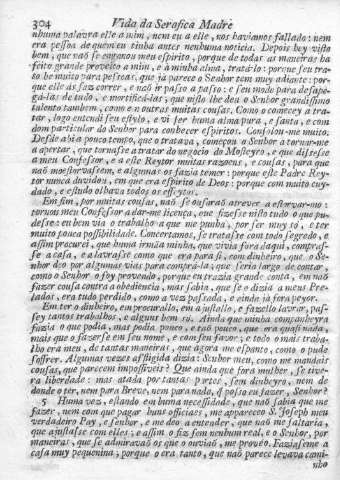 304 Vida da Serafica Madre
nhuma palavra elle a mim, nem eu a elle, nos haviamos fallado: nem
era pessoa de quem eu tinha antes nenhuma noticia. Depois hey visto
bem, que naõ se enganou meu espirito, porque de todas as maneiras ha
feito grande proveito a mim, e à minha alma, tratá-lo: porque seu tra-
to he muito para pessoas, que já parece o Senhor tem muy adiante: por-
que elle as faz correr, e naõ ir passo a passo: e seu modo para desape-
gá-las de tudo, e mortificá-las, que nisto lhe deu o Senhor grandissimo
talento tambem, como em outras muitas cousas. Como o comecey a tra-
tar, logo entendi seu estylo, e vi ser huma alma pura, e santa, e com
dom particular do Senhor para conhecer espiritos. Consolou-me muito.
Desde ahi a pouco tempo, que o tratava, começou o Senhor a tornar-me
a apertar, que tornasse a tratar do negocio do Mosteyro, e que dissesse
a meu Confessor, e a este Reytor muitas razoens, e cousas, para que
naõ me estorvassem, e algumas os fazia temer: porque este Padre Rey-
tor nunca duvidou, em que era espirito de Deos: porque com muito cuy-
dado, e estudo olhava todos os effeytos.
Em fim, por muitas cousas, naõ se ousaraõ atrever a estorvar-mo:
tornou meu Confessor a dar-me licença, que fizesse nisto tudo o que pu-
desse: eu bem via o trabalho a que me punha, por ser muy só, e ter
muito pouca possibilidade. Concertamos, se tratasse com todo segredo, e
assim procurei, que huma irmãa minha, que vivia fora daqui, compras-
se a casa, e a lavrasse como que era para si, com dinheiro, que o Se-
nhor deo por algumas vias para comprá-la; que seria largo de contar,
como o Senhor o foy provendo, porque eu trazia grande conta, em naõ
fazer cousa contra a obediencia, mas sabia, que se o dizia a meus Pre-
lados, era tudo perdido, como a vez passada, e ainda já fora peyor.
Em ter o dinheiro, em procurá-lo, em a justá-lo, e fazello lavrar, pas-
sey tantos trabalhos, e alguns bem só. Ainda que minha companheyra
fazia o que podia, mas podia pouco, e taõ pouco, que era quasi nada,
mais que o fazer-se em seu nome, e com seu favor; e todo o mais traba-
lho era meu, de tantas maneiras, que agora me espanto, como o pude
soffrer. Algumas vezes affligida dizia: Senhor meu, como me mandais
cousas, que parecem impossiveis? Que ainda que fora mulher, se tive-
ra liberdade: mas atada por tantas partes, sem dinheyro, nem de
donde o ter, nem para Breve, nem para nada, q̃ posso eu fazer, Senhor?
5 Huma vez, estando em huma necessidade, que naõ sabia que me
fazer, nem com que pagar huns officiaes, me appareceo S. Joseph meu
verdadeiro Pay, e senhor, e me deo a entender, que naõ me faltaria,
que ajustasse com elles: e assim o fiz sem nenhum real, e o Senhor, por
maneiras, que se admiravaõ os que o ouviaõ, me proveo. Fazia-seme a
casa muy pequenina; porque o era tanto, que naõ parece levava cami-
nho